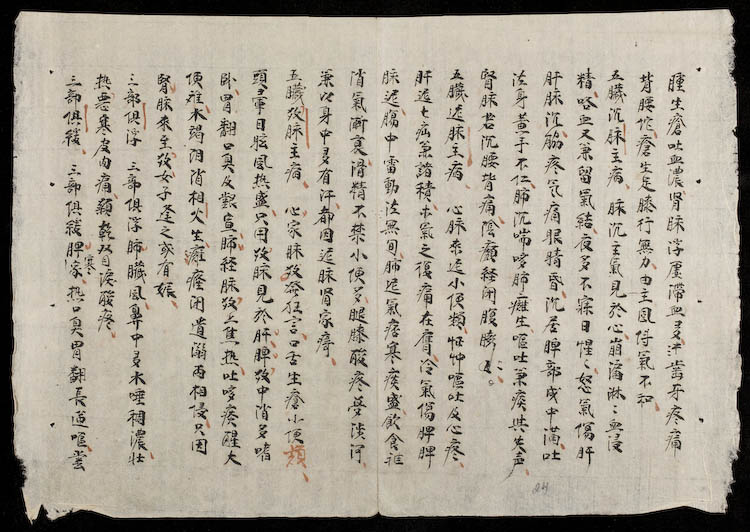 腫生瘡吐血濃腎脉浮虛滯血多汗齒牙疼痛
背腰忙瘡生足膝行無力由主風侍氣不和
五臟沉脉主病 脉沉主氣見於心崩漏淋〻血侵
精喀血又兼留氣結夜多不寐目惺〻怒氣傷肝
肝脉沉筋疼氣痛眼睛昏沉居脾部成中滿吐
法身黃手不仁肺沉喘嗽肺癰生嘔吐兼痰共失声
腎脉若沉腰背痛陰癲經闭腹膨〻
五臟遲脉主病 心脉来遲小便頻怔忡嘔吐及心疼
肝遲七疝兼諸積木氣之復痛在胷冷氣傷脾脾
脉遲腸中雷動法無旬肺遲氣痞寒痰盛飲食难
消氣漸衰滑精不禁小便多腿膝酸疼夢淡河
兼以身中多有汗都因遲脉腎家瘠
五臟数脉主病 心家脉数發狂言口舌生瘡小便頻
頭暈目眩風热盛只因数脉見於肝脾数中消多嗜
卧胃翻口臭及歡宣肺経脉数上焦热吐嗽痰醒大
便难水竭阳消相火生癰痊闭遺溺两相侵只因
腎脉来至数女子逢之或有娠
三部俱浮 三部俱浮肺臟風鼻中多水唾稠濃壮
热恶寒皮肉痛顙乾双目淚酸疼
三部俱緩 三部俱緩脾家热口臭胃翻長道嘔
寒
24